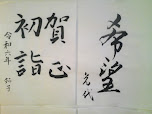 希望
賀正
初詣
令和六年